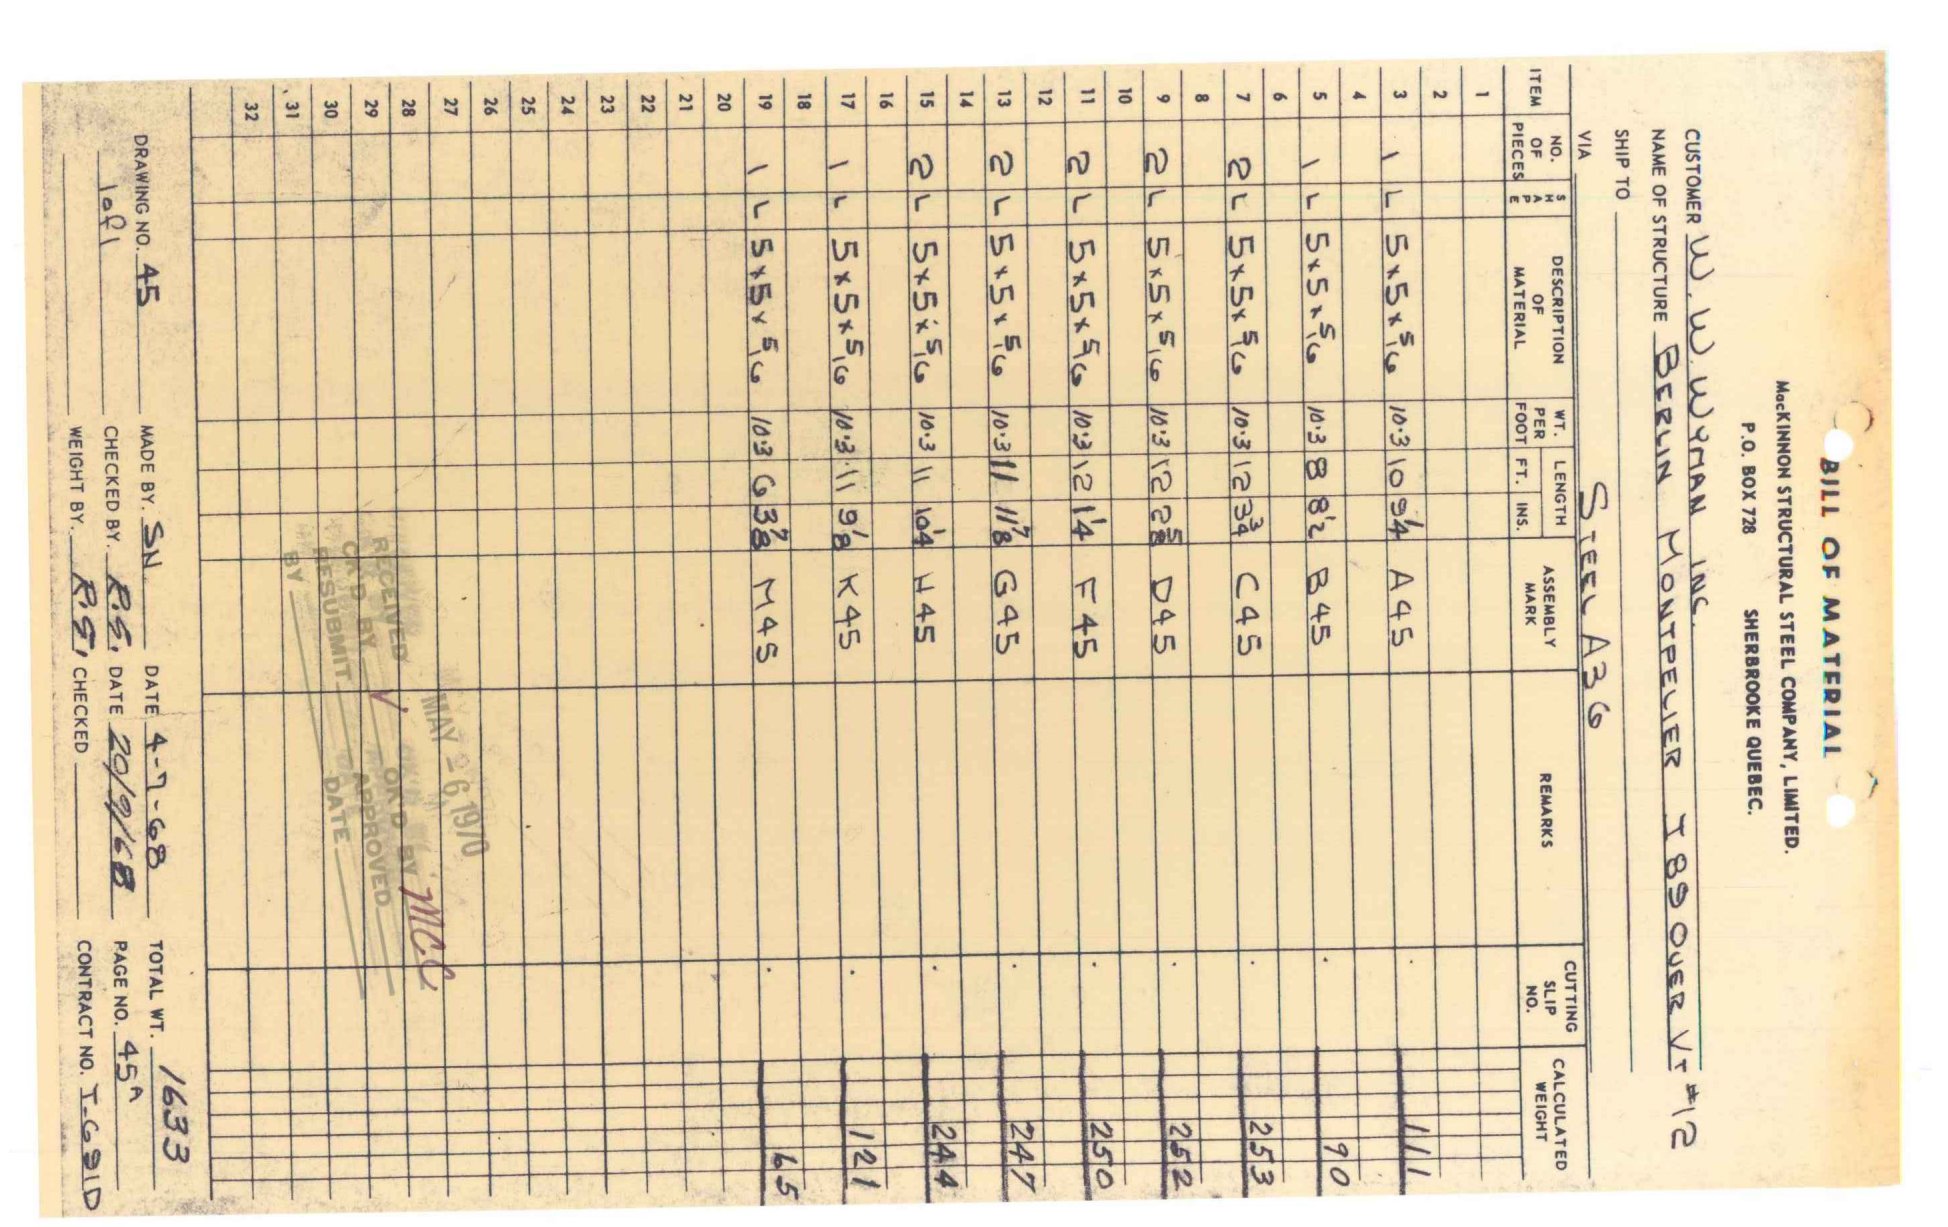 BILL OF MATERIAL
MacKINNON STRUCTURAL STEEL COMPANY, LIMITED.
P.O. BOX 728 SHERBROOKE QUEBEC.
CUSTOMER W. W. WYMAN INC.
NAME OF STRUCTURE BERLIN MONTPELIER I 89 OVER VT #12
SHIP TO
VIA STEEL A36
ITEM NO. OF PIECES SHAPE DESCRIPTION OF MATERIAL WT. PER FOOT LENGTH FT. INS. ASSEMBLY MARK REMARKS CUTTING SLIP NO. CALCULATED WEIGHT
1
2
3 1 L 5x5x5/16 10.3 10 9 1/4 A45 111
4
5 1 L 5x5x5/16 10.3 8 8 1/2 B45 90
6
7 2 L 5x5x5/16 10.3 12 3 3/4 C45 253
8
9 2 L 5x5x5/16 10.3 12 2 5/8 D45 252
10
11 2 L 5x5x5/16 10.3 12 1 1/4 F45 250
12
13 2 L 5x5x5/16 10.3 11 11 7/8 G45 247
14
15 2 L 5x5x5/16 10.3 11 10 1/4 H45 244
16
17 1 L 5x5x5/16 10.3 11 9 1/8 K45 121
18
19 1 L 5x5x5/16 10.3 6 3 7/8 M45 65
20
21
22
23
24
25
26
27
28
29
30
31
32
MAY -6 1970
RECEIVED OK'D BY M.C.C.
CK'D BY APPROVED
RESUBMIT DATE
BY
DRAWING NO. 45 MADE BY. SN DATE 4-7-68 TOTAL WT. 1633
1 of 1 CHECKED BY. R.S. DATE 20/9/68 PAGE NO. 45A
WEIGHT BY. R.S. CHECKED CONTRACT NO. T-691D